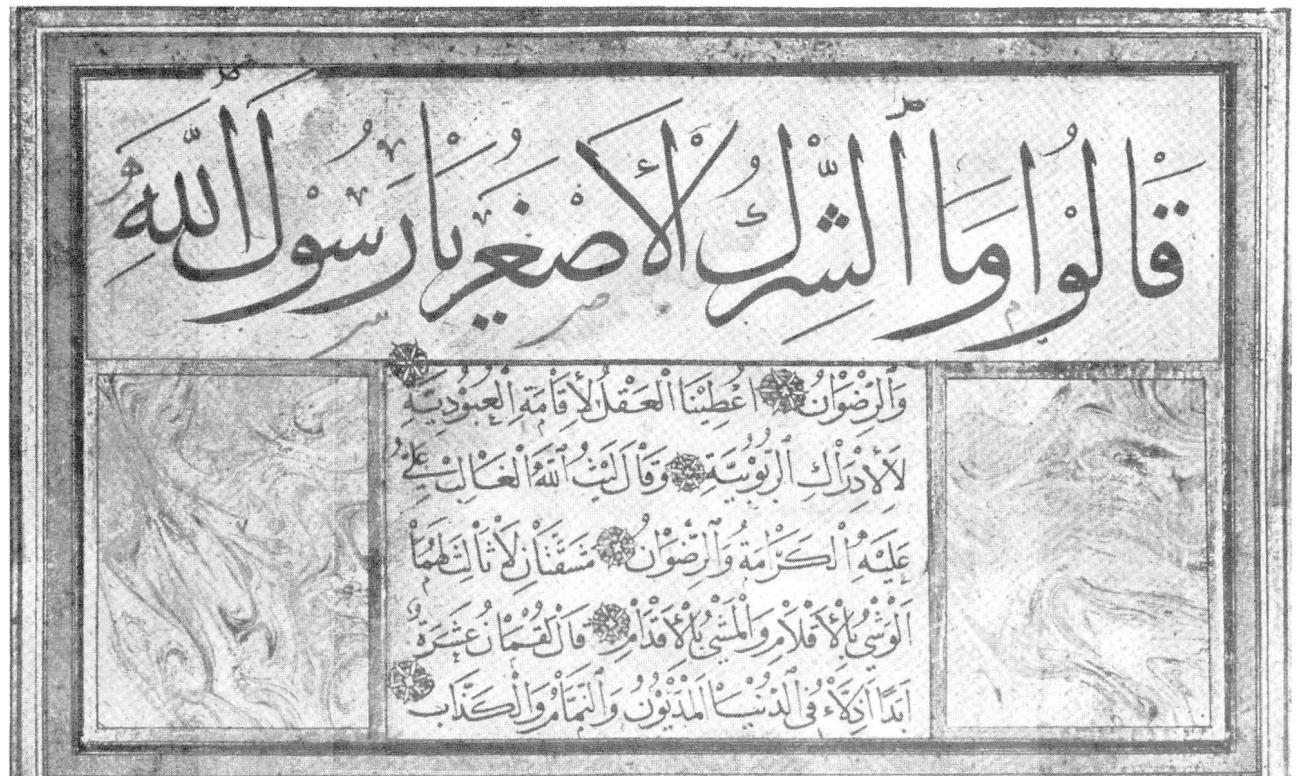 قَالُوا وَمَا ٱلشِّرْكُ ٱلْأَصْغَرُ يَا رَسُولَ ٱللَّهِ
وَٱلرِّضْوَانُ اُعْطِيْنَا الْعَقْلَ لِأِقَامَةِ الْعُبُودِيَّةِ
لَا لِأِدْرَاكِ ٱلرُّبُوبِيَّةِ وَقَالَ لَيْثُ ٱللَّهِ الْغَالِبُ عَلِيٌّ
عَلَيْهِ الْكَرَامَةُ وَٱلرِّضْوَانُ مَشَقَّتَانِ لَا ثَالِثَ لَهُمَا
اَلْوَشْيُ بِالْأَقْلَامِ وَالْمَشْيُ بِالْأَقْدَامِ قَالَ لُقْمَانُ عَشَرَةٌ
اَبَدًا اَذِلَّاءُ فِى ٱلدُّنْيَا اَلْمَدْيُونُ وَٱلنَّمَّامُ وَالْكَذَّابُ